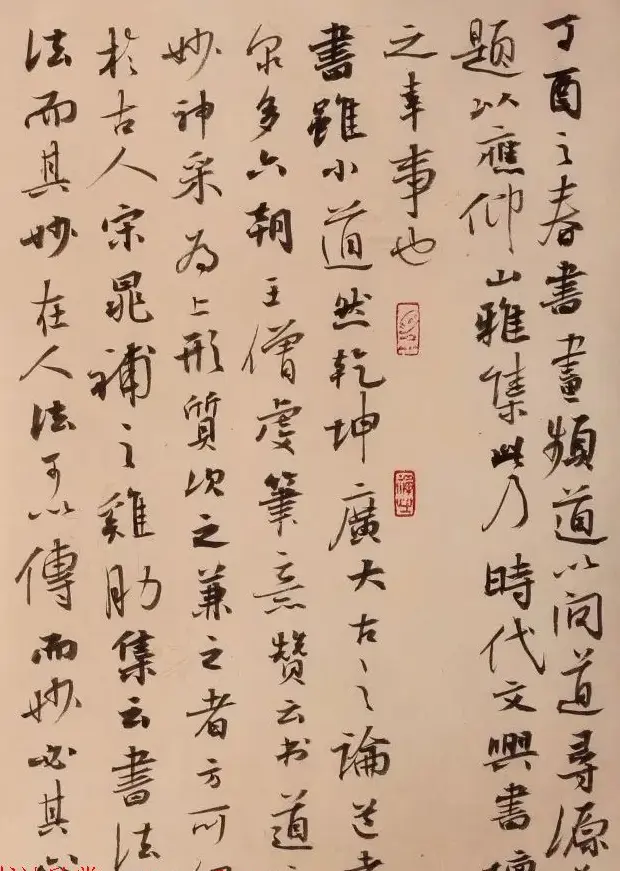 丁酉之春書畫頻道以问道尋源
题以應仰山雅集此乃時代文興書壇
之幸事也
書雖小道然乾坤廣大古之論道者
众多六朝王僧虔筆意赞云书道
妙神采为上形質次之兼之者方可紹
於古人宋晁補之雞肋集云書法
法而其妙在人法可以傳而妙必其